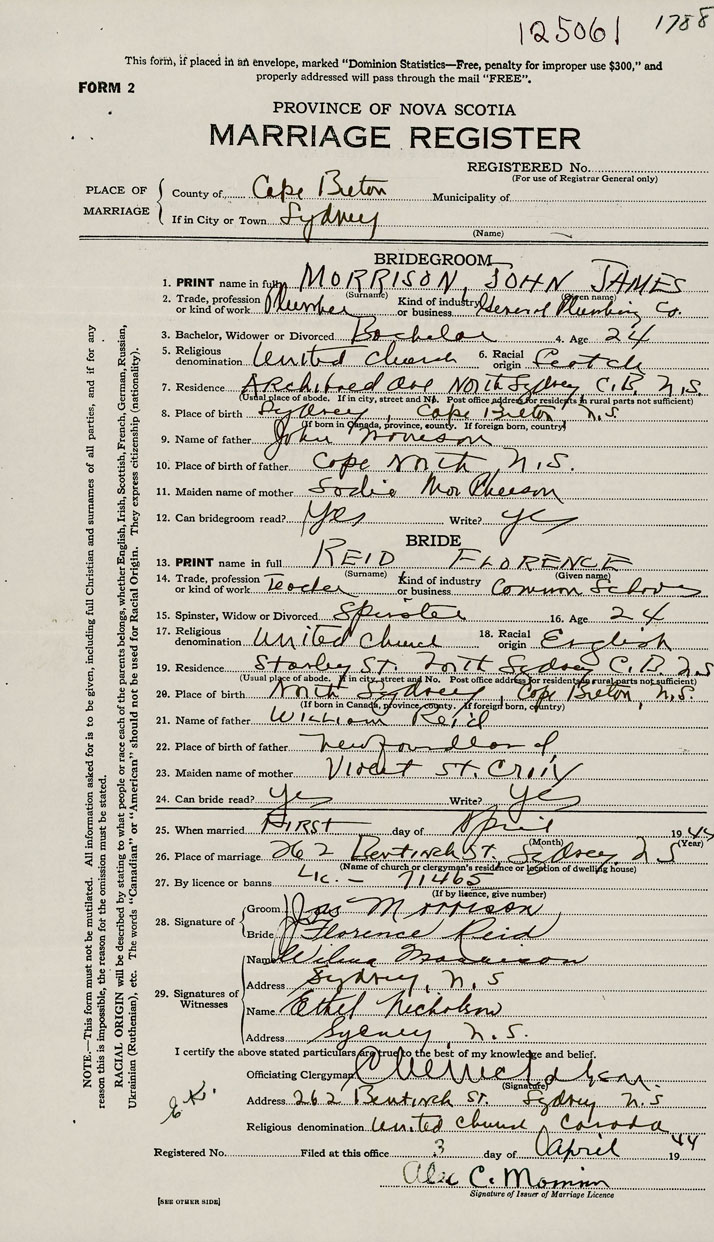 125061 1788
This form, if placed in an envelope, marked "Dominion Statistics—Free, penalty for improper use $300," and
properly addressed will pass through the mail "FREE".
FORM 2
PROVINCE OF NOVA SCOTIA
MARRIAGE REGISTER
REGISTERED No.
(For use of Registrar General only)
PLACE OF MARRIAGE
County of Cape Breton Municipality of
If in City or Town Sydney
(Name)
BRIDEGROOM
1. PRINT name in full MORRISON, JOHN JAMES
(Surname) (Given name)
2. Trade, profession or kind of work Plumber Kind of industry or business General Plumbing Co.
3. Bachelor, Widower or Divorced Bachelor 4. Age 24
5. Religious denomination United Church 6. Racial origin Scotch
7. Residence Archibald Ave North Sydney C.B. N.S.
(Usual place of abode. If in city, street and No. Post office address for residents in rural parts not sufficient)
8. Place of birth Sydney, Cape Breton, N.S.
(If born in Canada, province, county. If foreign born, country)
9. Name of father John Morrison
10. Place of birth of father Cape North N.S.
11. Maiden name of mother Sadie MacPherson
12. Can bridegroom read? Yes Write? yes
BRIDE
13. PRINT name in full REID FLORENCE
(Surname) (Given name)
14. Trade, profession or kind of work Teacher Kind of industry or business Common Schools
15. Spinster, Widow or Divorced Spinster 16. Age 24
17. Religious denomination United Church 18. Racial origin English
19. Residence Stanley St. North Sydney C.B. N.S
(Usual place of abode. If in city, street and No. Post office address for residents in rural parts not sufficient)
20. Place of birth North Sydney, Cape Breton, N.S.
(If born in Canada, province, county. If foreign born, country)
21. Name of father William Reid
22. Place of birth of father Newfoundland
23. Maiden name of mother Violet St. Croix
24. Can bride read? yes Write? yes
25. When married FIRST day of April 1944
(Month) (Year)
26. Place of marriage 262 Bentinck St. Sydney, N S
(Name of church or clergyman's residence or location of dwelling house)
27. By licence or banns Lic. — 71465
(If by licence, give number)
28. Signature of Groom Jas Morrison
Bride Florence Reid
29. Signatures of Witnesses
Name Wilma Morrison
Address Sydney, N.S
Name Ethel Nicholson
Address Sydney, N.S.
I certify the above stated particulars are true to the best of my knowledge and belief.
Officiating Clergyman
(Signature)
Address 262 Bentinck St. Sydney N.S
Religious denomination United Church Canada
Registered No. Filed at this office 3 day of April 1944
Alex C.
Signature of Issuer of Marriage Licence
[SEE OTHER SIDE]
NOTE.—This form must not be mutilated. All information asked for is to be given, including full Christian and surnames of all parties, and if for any
reason this is impossible, the reason for the omission must be stated.
RACIAL ORIGIN will be described by stating to what people or race each of the parents belongs, whether English, Irish, Scottish, French, German, Russian,
Ukrainian (Ruthenian), etc. The words "Canadian" or "American" should not be used for Racial Origin. They express citizenship (nationality).